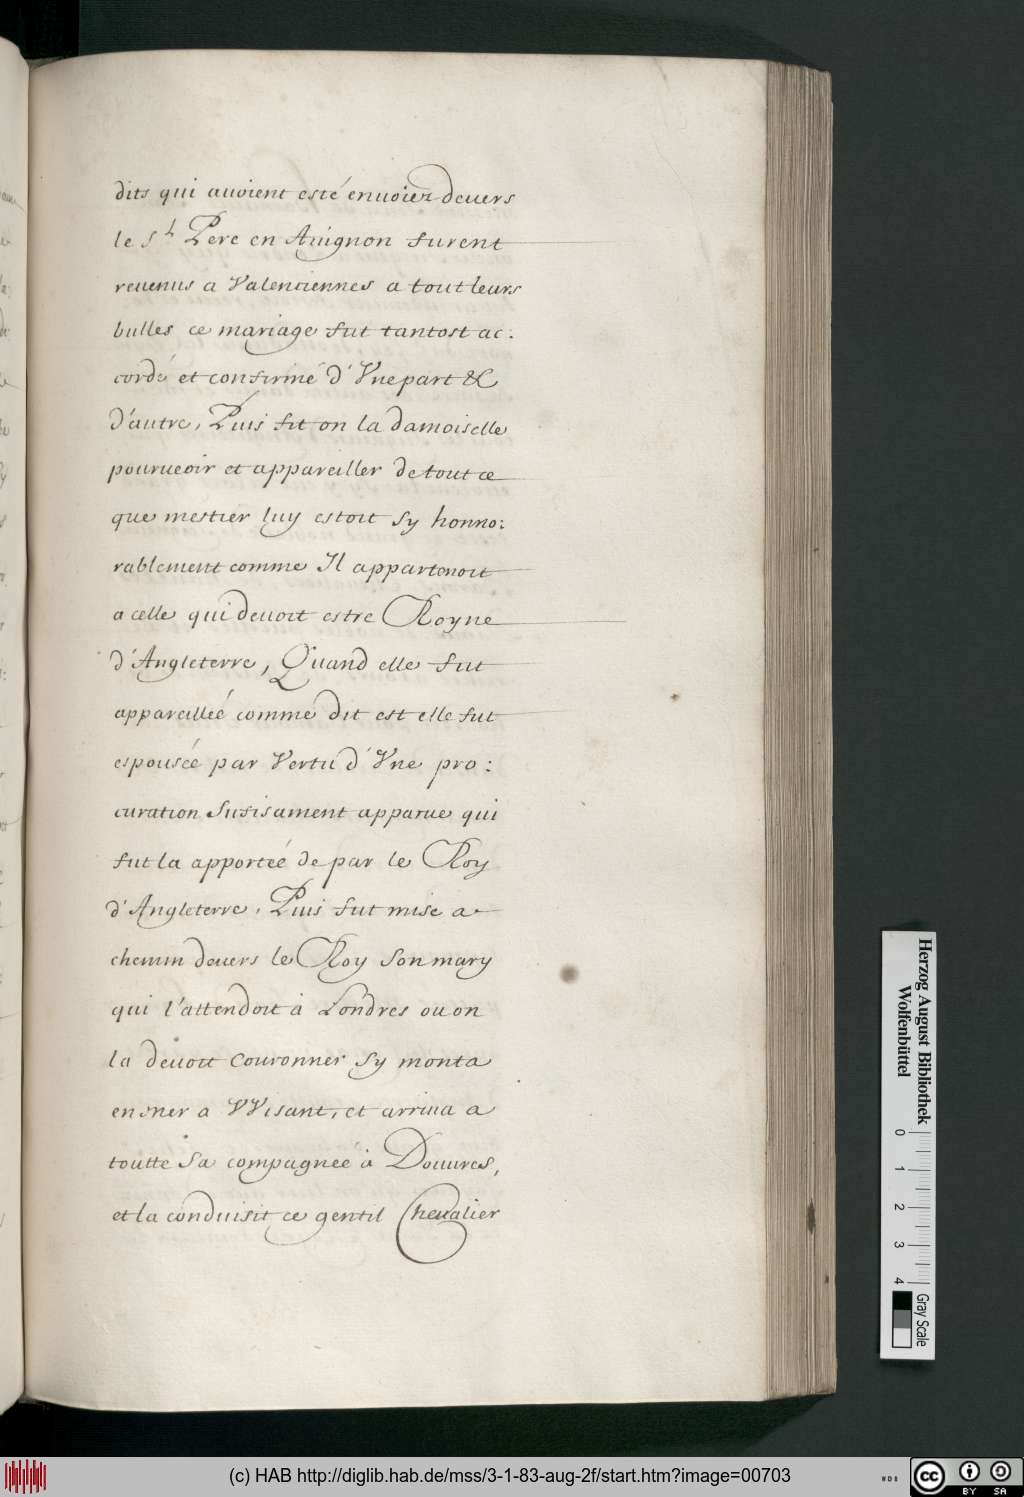 dits qui auoient esté enuoiez deuers
le St Pere en Auignon furent
reuenus a Valenciennes a tout leurs
bulles ce mariage fut tantost ac:
cordé et confirmé d'Vne part &
d'autre, Puis fit on la damoiselle
pourueoir et appareiller de tout ce
que mestier luy estoit sy honno:
rablement comme Il appartenoit
a celle qui deuoit estre Royne
d'Angleterre, Quand elle fut
appareilleé comme dit est elle fut
espouseé par Vertu d'Vne pro:
curation Sufisament apparue qui
fut la apporteé de par le Roy
d'Angleterre, Puis fut mise a
chemin deuers le Roy Son mary
qui l'attendoit à Londres ou on
la deuoit Couronner sy monta
en mer a VVisant, et arriua a
toutte Sa compagneé à Douures,
et la conduisit ce gentil Cheualier
Herzog August Bibliothek
Wolfenbüttel
0 1 2 3 4
Gray Scale
(c) HAB http://diglib.hab.de/mss/3-1-83-aug-2f/start.htm?image=00703
WDB
cc BY SA